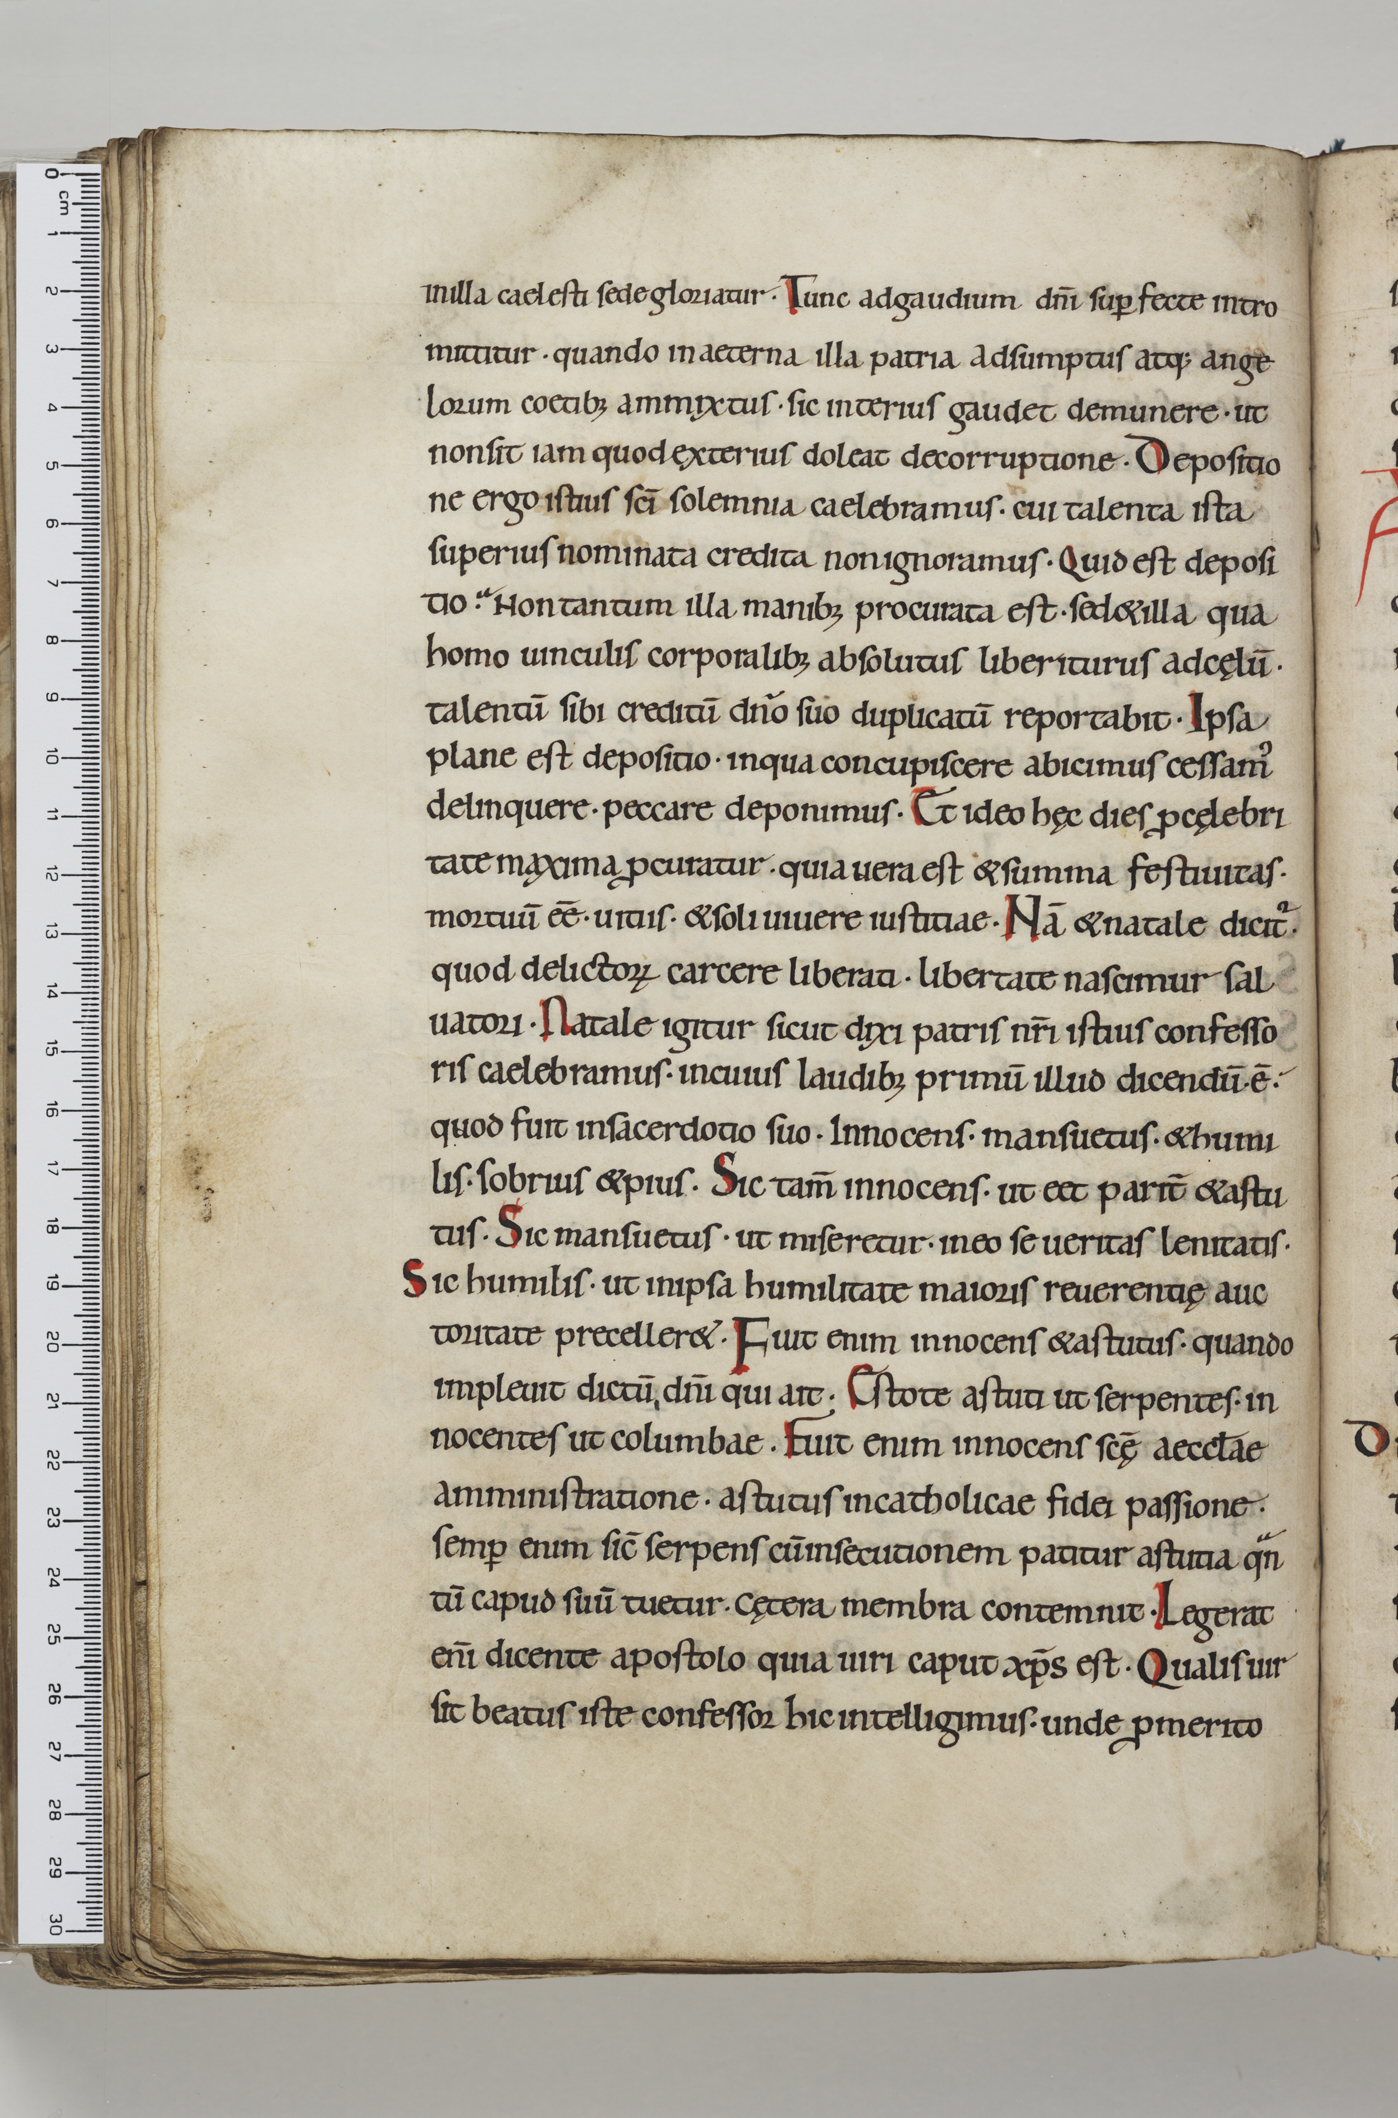 inilla caelesti sede gloriatur. Tunc adgaudium dn̄i suꝑ fecte intro
mittitur. quando inaeterna illa patria adsumptus atq; ange
lorum coetibꝫ ammixtus. sic interius gaudet demunere. ut
nonsit iam quod exterius doleat decorruptione. Depositio
ne ergo istius sc̄i solemnia caelebramus. cui talenta ista
superius nominata credita nonignoramus. Quid est deposi
tio. Non tantum illa manibꝫ procurata est. sed & illa qua
homo uinculis corporalibꝫ absolutus liber iturus adcęlū.
talentū sibi creditū dn̄o suo duplicatū reportabit. Ipsa
plane est depositio. inqua concupiscere abicimus cessamꝰ
delinquere. peccare deponimus. Et ideo hęc dies ꝓcęlebri
tate maxima ꝓcuratur. quia uera est & summa festiuitas.
mortuū eē. uitiis. & soli uiuere iustitiae. Nā & natale dicit᷑.
quod delictoꝝ carcere liberati. libertate nascimur sal
uatori. Natale igitur sicut dixi patris nr̄i istius confesso
ris caelebramus. incuius laudibꝫ primū illud dicendū. ē.
quod fuit insacerdotio suo. Innocens. mansuetus. & humi
lis. sobrius & pius. Sic tam̄ innocens. ut eet parit̄ & astu
tus. Sic mansuetus. ut miseretur. ineo seueritas lenitatis.
Sic humilis. ut inipsa humilitate maioris reuerentię auc
toritate preceller&. Fuit enim innocens & astutus. quando
impleuit dictū dn̄i qui ait. Estote astuti ut serpentes. in
nocentes ut columbae. Fuit enim innocens scę̄ aeccl̄ae
amministratione. astutus incatholicae fidei passione.
semꝑ enim sic̄ serpens cū insecutionem patitur astutia qᷓn
tū capud suū tuetur. cętera membra contemnit. Legerat
eni̅ dicente apostolo quia uiri caput xp̄s est. Qualis uir
sit beatus iste confessor hic intelligimus. unde ꝓmerito